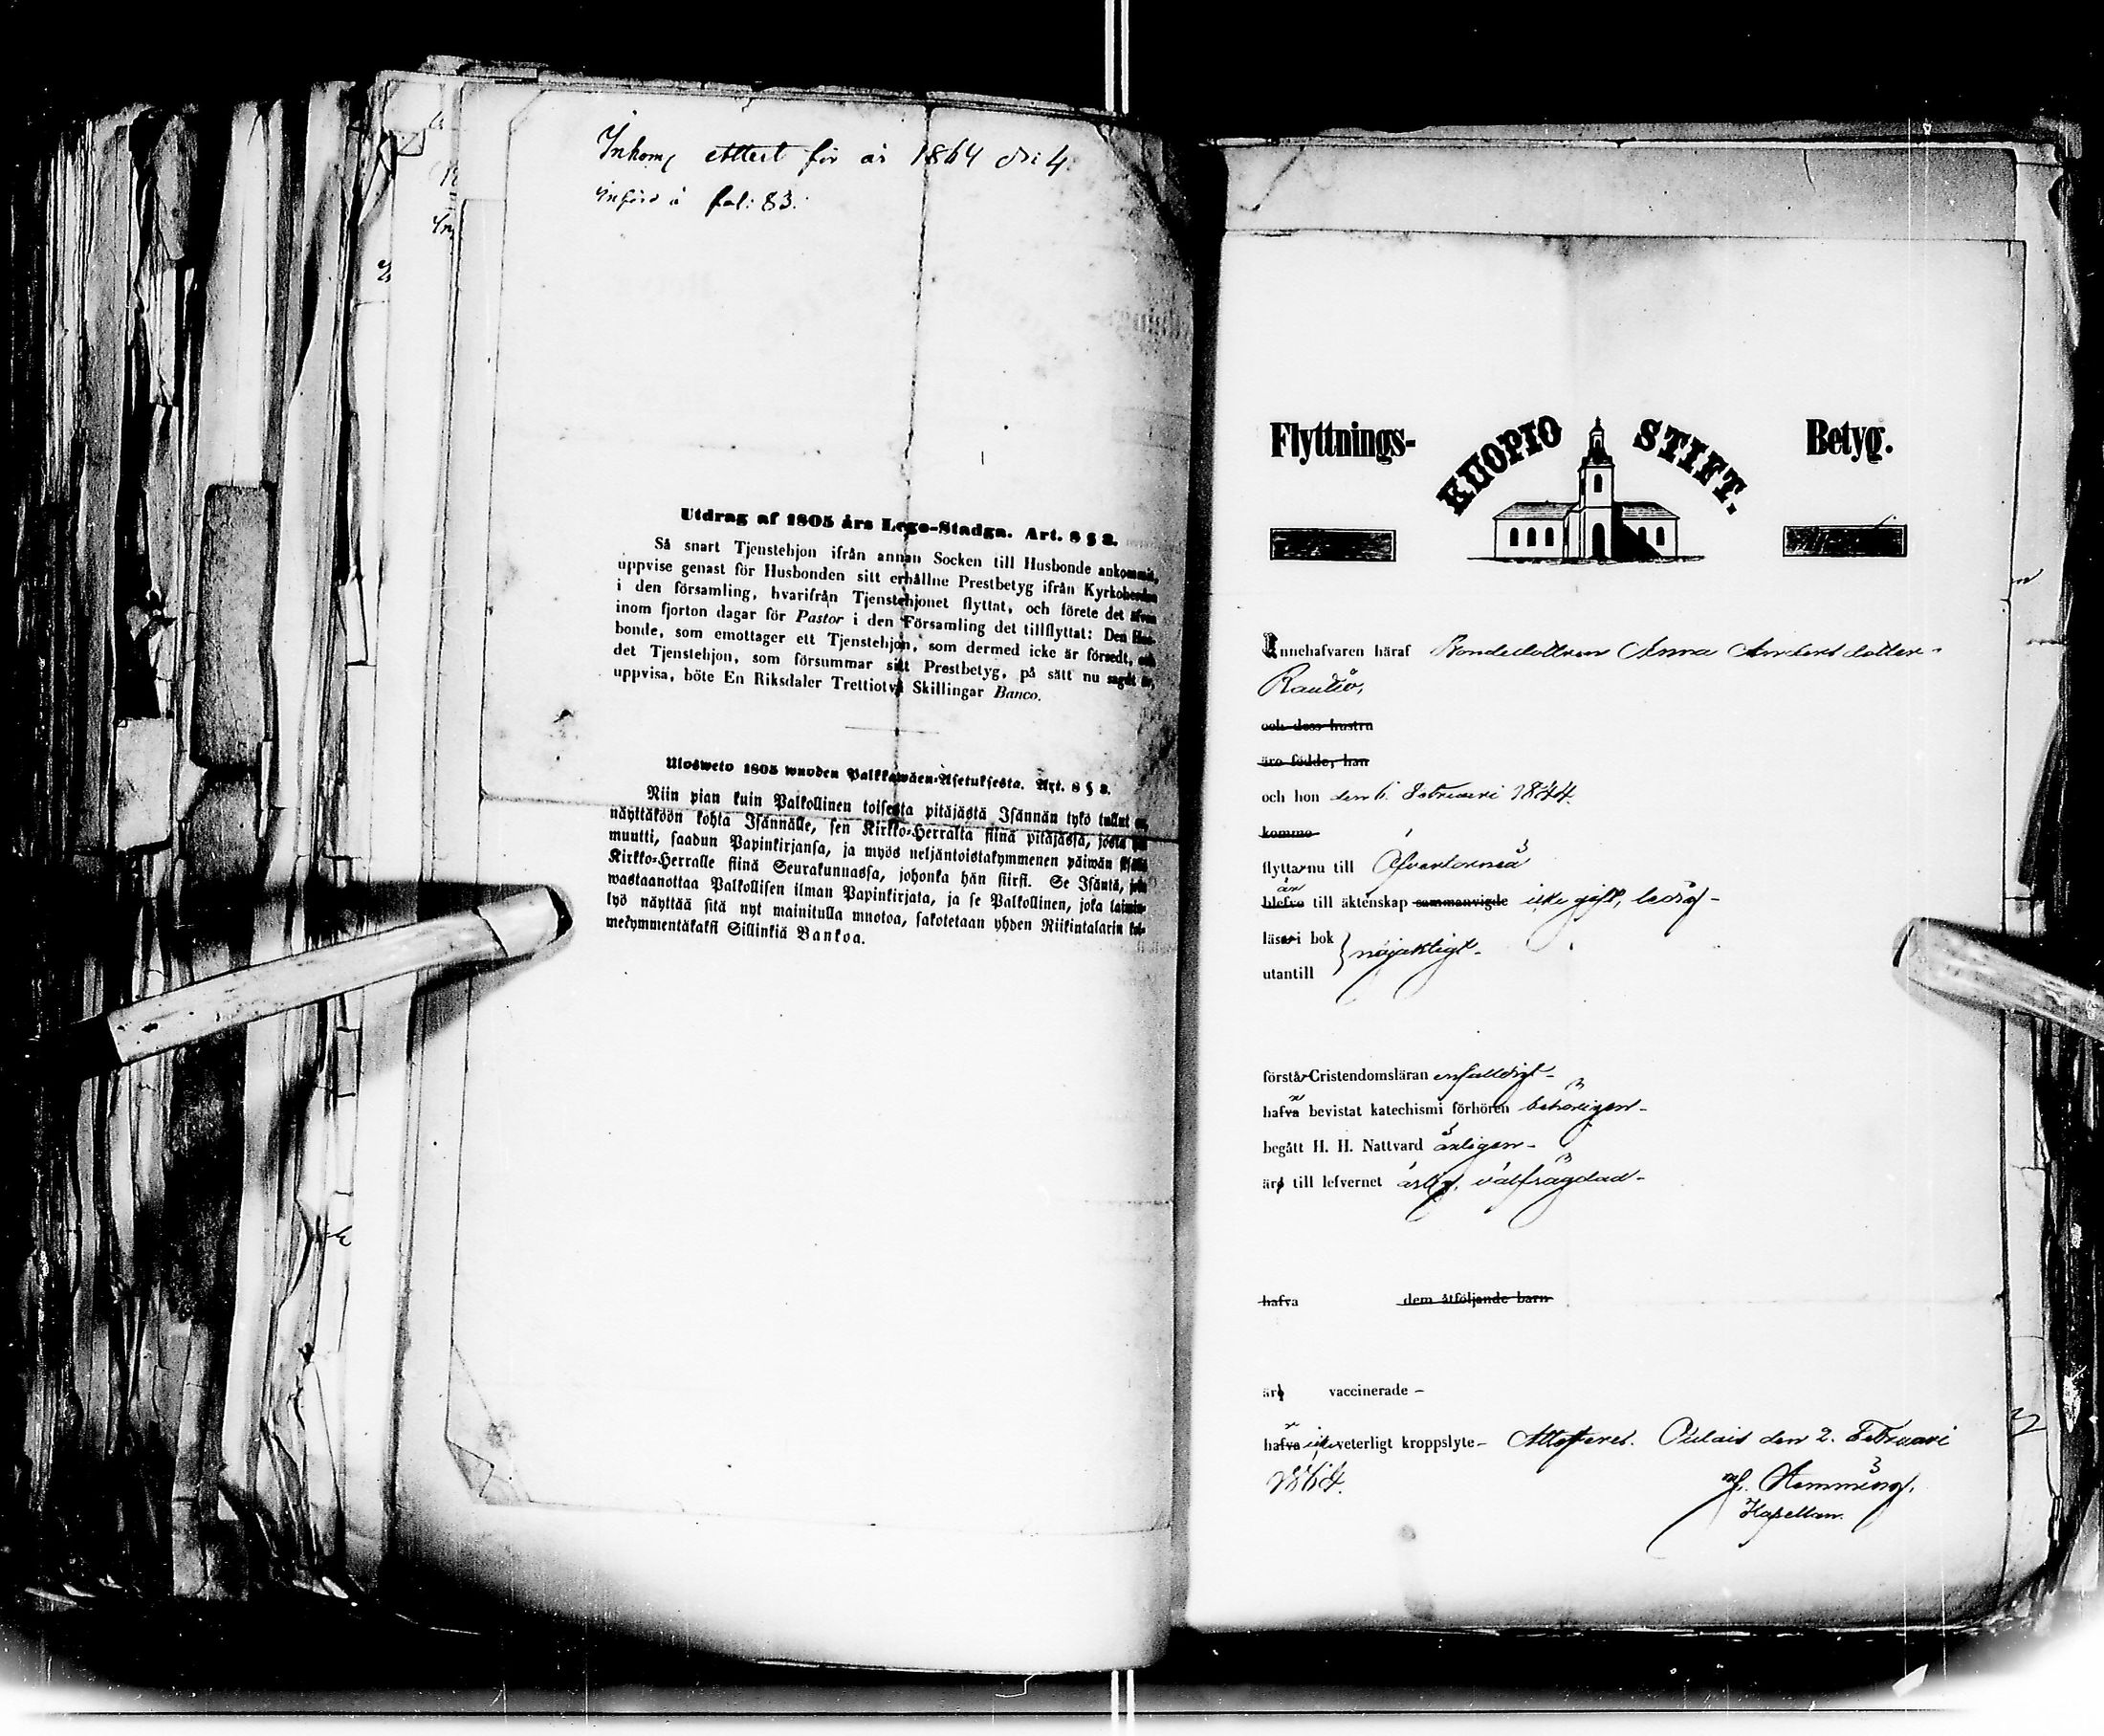 Inkom, attest för år 1864 No: 4.
Införd å fol: 83.
Utdrag af 1805 års Lego-Stadga. Art. 8 § 2.
Så snart Tjenstehjon ifrån annan Socken till Husbonde ankommit,
uppvise genast för Husbonden sitt erhållne Prestbetyg ifrån Kyrkoherden
i den församling, hvarifrån Tjenstehjonet flyttat, och förete det äfven
inom fjorton dagar för Pastor i den Församling det tillflyttat: Den Hus-
bonde, som emottager ett Tjenstehjon, som dermed icke är försedt, och
det Tjenstehjon, som försummar sitt Prestbetyg, på sätt nu sagdt är,
uppvisa, böte En Riksdaler Trettiotvå Skillingar Banco.
Ulosweto 1805 wuoden Palkkawäen-Asetuksesta. Art. 8 § 2.
Niin pian kuin Palkollinen toisesta pitäjästä Isännän tykö tullut on,
näyttäköön kohta Isännälle, sen Kirkko-Herralta siinä pitäjässä, josta
muutti, saadun Papinkirjansa, ja myös neljäntoistakymmenen päiwän
Kirkko-Herralle siinä Seurakunnassa, johonka hän siirsi. Se Isäntä, joka
wastaanottaa Palkollisen ilman Papinkirjata, ja se Palkollinen, joka laimin-
lyö näyttää sitä nyt mainitulla muotoa, sakotetaan yhden Riikintalarin kol-
mekymmentäkaksi Sillinkiä Bankoa.
Flyttnings- KUOPIO STIFT. Betyg.
Innehafvaren häraf Bondedottren Anna Andersdotter
Rautio,
och dess hustru
äro födde, han
och hon den 6. Februari 1844.
komme
flyttar nu till Öfvertorneå
är
blefvo till äktenskap sammanvigde icke gift, ledig-
läser i bok
utantill } nöjaktigt-
förstår Cristendomsläran enfaldigt-
hafva bevistat katechismi förhören behörigen-
begått H. H. Nattvard årligen-
äro till lefvernet ärlig, välfrägdad-
hafva dem åtföljande barn
äro vaccinerade -
hafva icke veterligt kroppslyte- Attesteras. Pulais den 2. Februari
1864.
Hemming,
Kapellan.